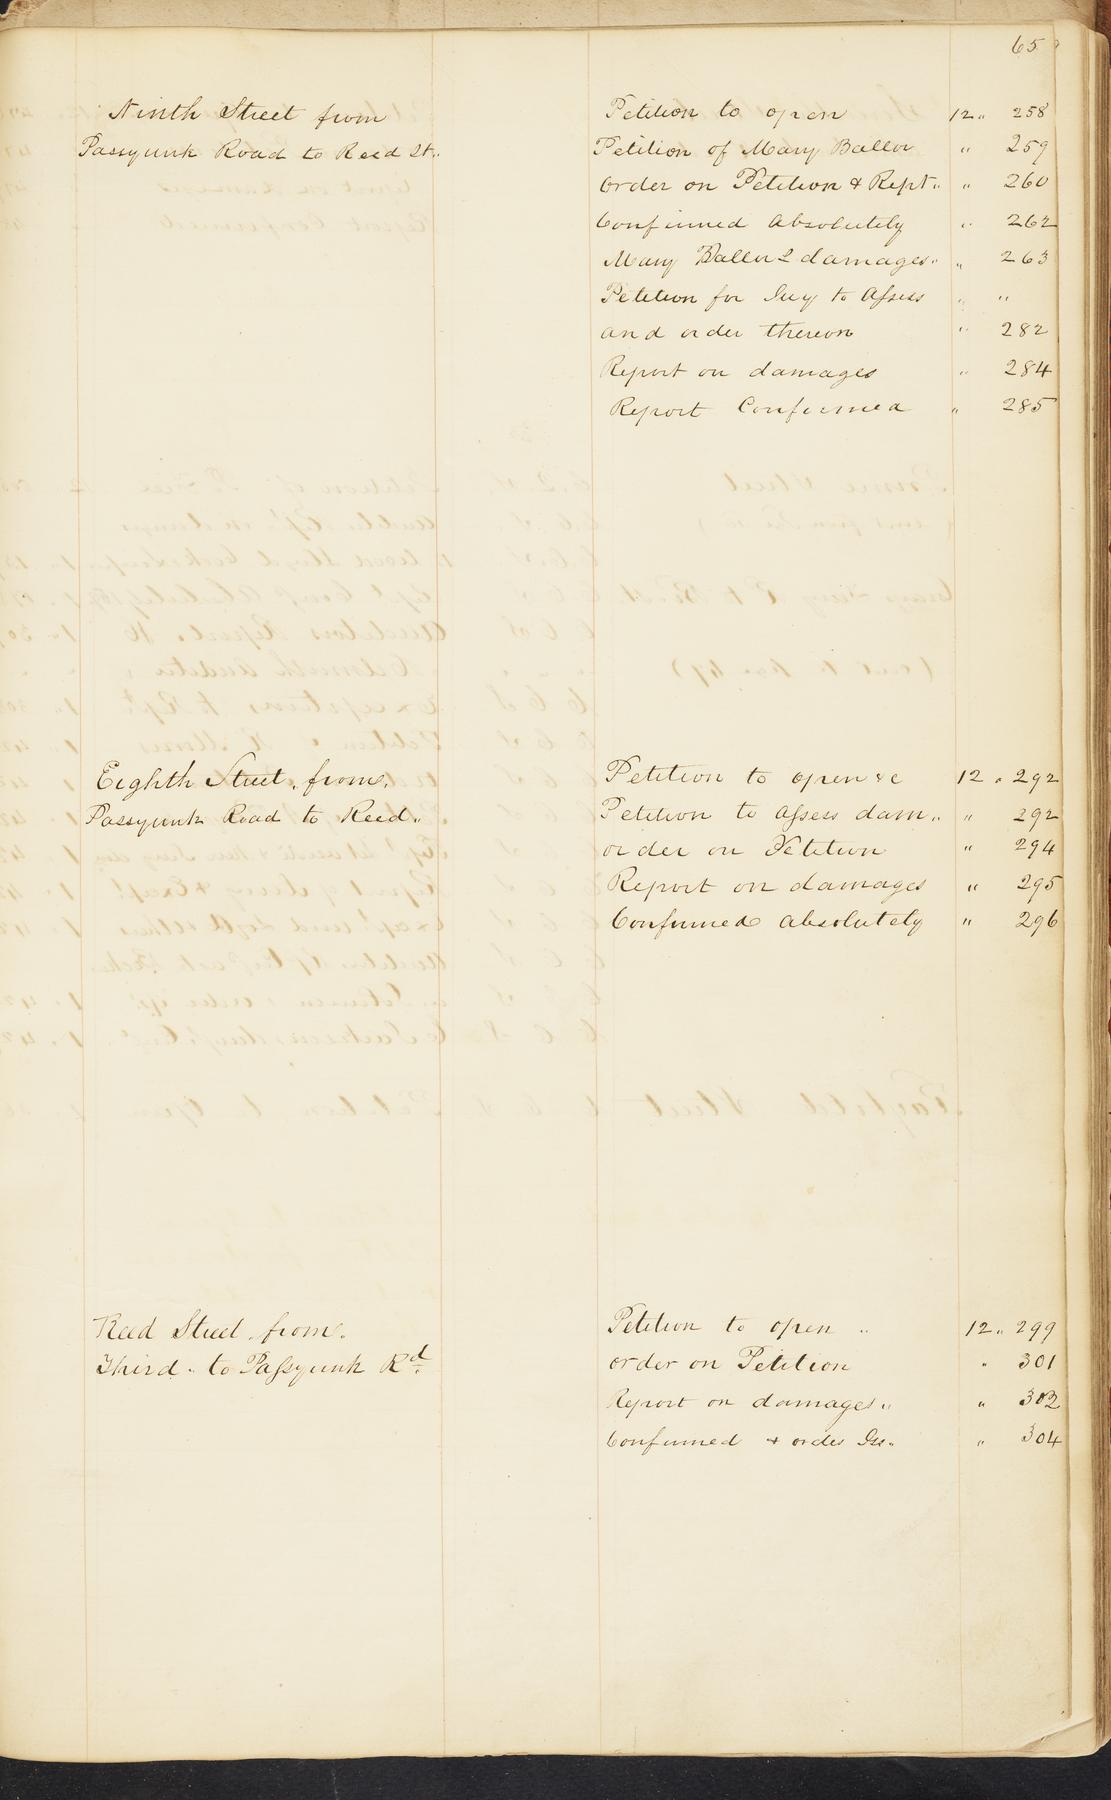 65
Ninth Street from Petition to open 12 " 258
Passyunk Road to Reed St. Petition of Mary Baller " 259
Order on Petition & Rept. " 260
Confirmed Absolutely " 262
Mary Baller damages " 263
Petition for Jury to Assess " "
and order thereon " 282
Report on damages " 284
Report Confirmed " 285
Eighth Street from Petition to open &c 12 " 292
Passyunk Road to Reed " Petition to Assess dam. " 292
order on Petition " 294
Report on damages " 295
Confirmed Absolutely " 296
Reed Street from Petition to open " 12 " 299
Third to Passyunk Rd order on Petition " 301
Report on damages " " 302
Confirmed & order Iss. " 304